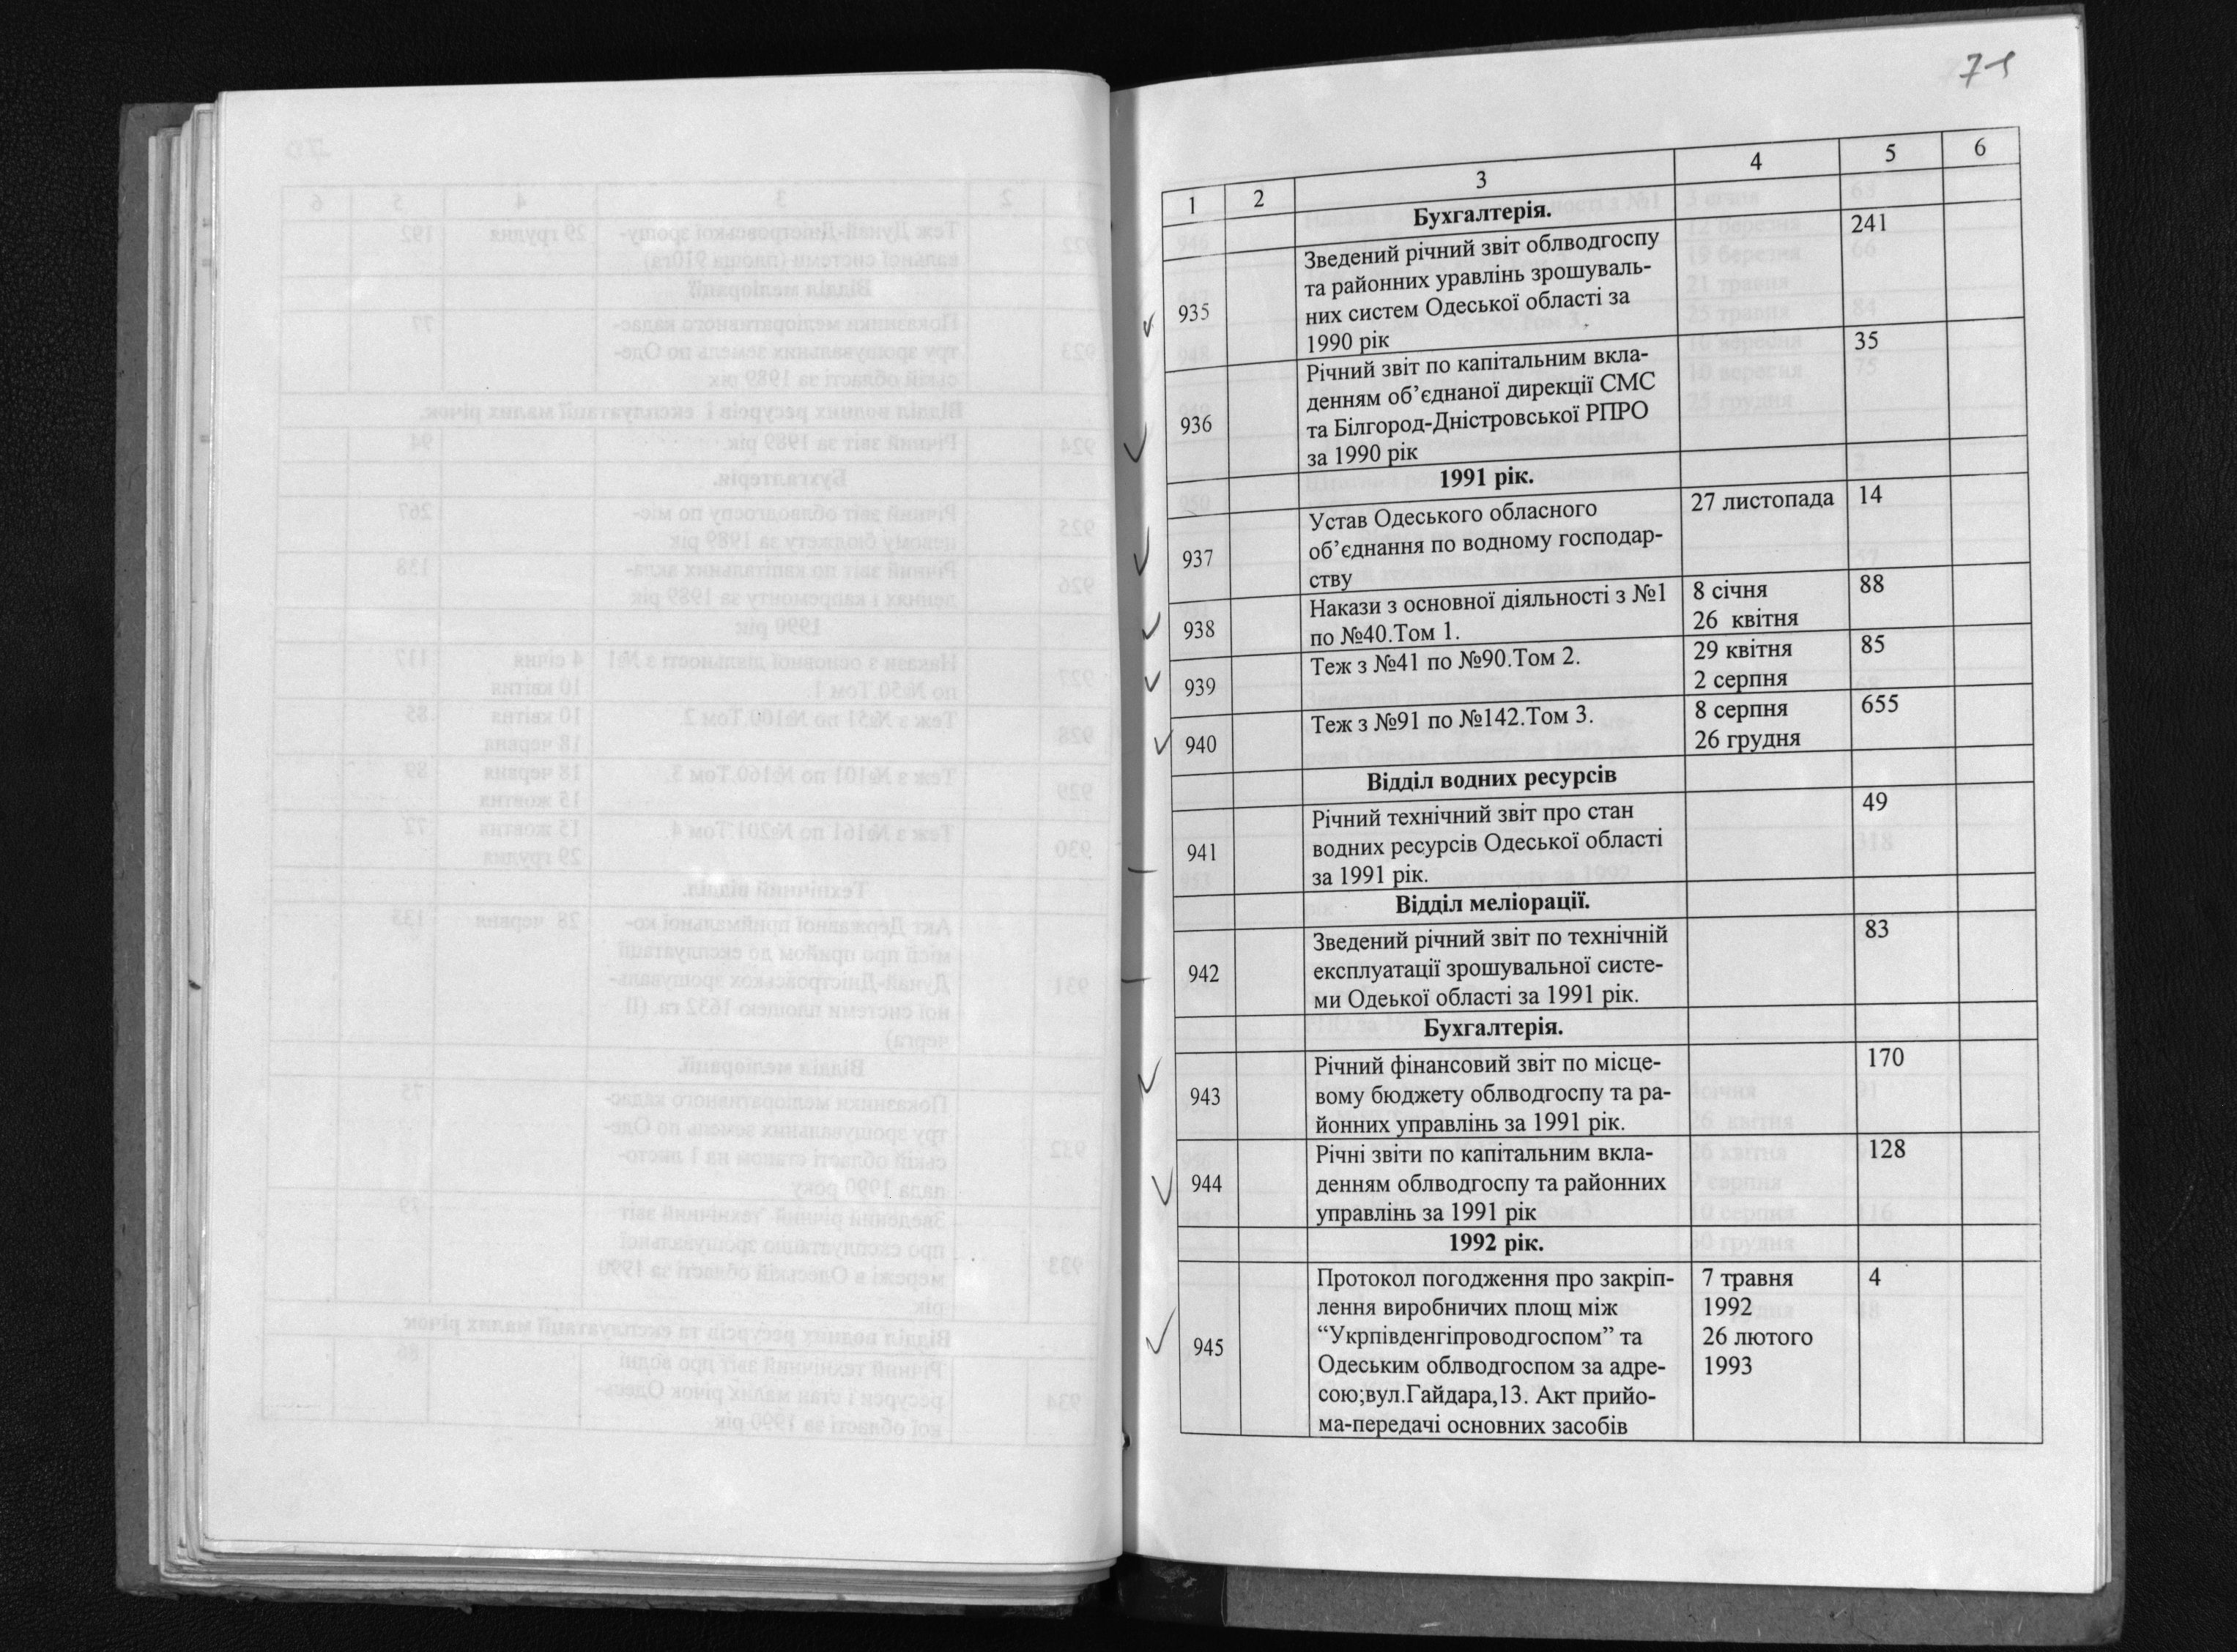 71
1 2 3 4 5 6
Бухгалтерія.
935 Зведений річний звіт облводгоспу 241
та районних уравлінь зрошуваль-
них систем Одеської області за
1990 рік
936 Річний звіт по капітальним вкла- 35
денням об’єднаної дирекції СМС
та Білгород-Дністровської РПРО
за 1990 рік
1991 рік.
937 Устав Одеського обласного 27 листопада 14
об’єднання по водному господар-
ству
938 Накази з основної діяльності з №1 8 січня 88
по №40.Том 1. 26 квітня
939 Теж з №41 по №90.Том 2. 29 квітня 85
2 серпня
940 Теж з №91 по №142.Том 3. 8 серпня 655
26 грудня
Відділ водних ресурсів
941 Річний технічний звіт про стан 49
водних ресурсів Одеської області
за 1991 рік.
Відділ меліорації.
942 Зведений річний звіт по технічній 83
експлуатації зрошувальної систе-
ми Одеької області за 1991 рік.
Бухгалтерія.
943 Річний фінансовий звіт по місце- 170
вому бюджету облводгоспу та ра-
йонних управлінь за 1991 рік.
944 Річні звіти по капітальним вкла- 128
денням облводгоспу та районних
управлінь за 1991 рік
1992 рік.
945 Протокол погодження про закріп- 7 травня 4
лення виробничих площ між 1992
“Укрпівденгіпроводгоспом” та 26 лютого
Одеським облводгоспом за адре- 1993
сою;вул.Гайдара,13. Акт прийо-
ма-передачі основних засобів